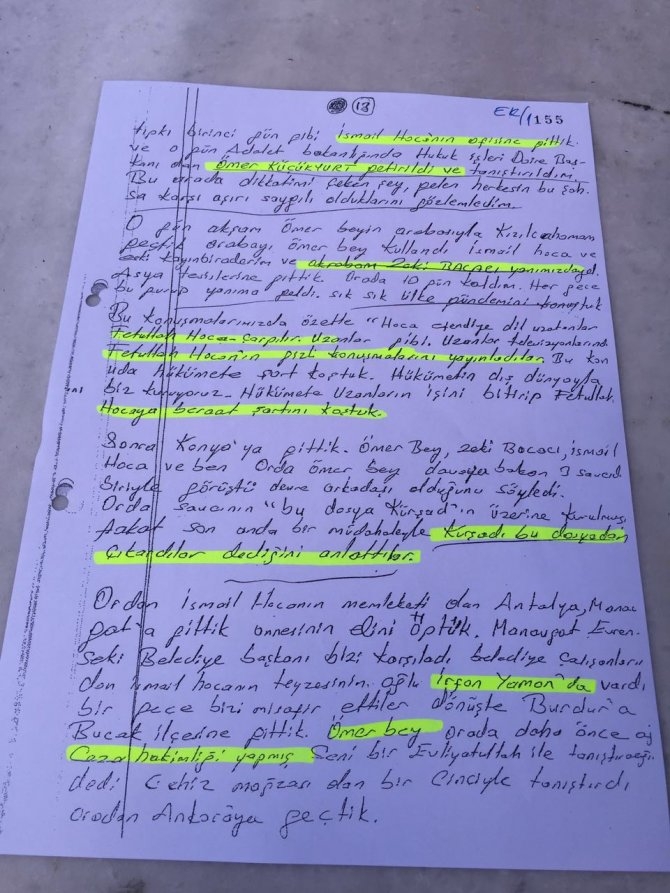 13
ER/1 155
tıpkı birinci gün gibi İsmail Hoca'nın ofisine gittik.
ve o gün Adalet bakanlığında Hukuk işleri Daire Baş-
kanı olan Ömer Küçükyurt getirildi ve tanıştırıldım.
Bu arada dikkatimi çeken şey, gelen herkesin bu şah-
sa karşı aşırı saygılı olduklarını gözlemledim.
O gün akşam Ömer beyin arabasıyla Kızılcahamam
geçtik arabayı Ömer bey kullandı İsmail hoca ve
eski kayınbiraderim ve akrabam Zeki BACACI yanımızdaydı.
Asya tesislerine gittik. Orada 10 gün kaldım. Her gece
bu gurup yanıma geldi. sık sık ülke gündemini konuştuk
Bu konuşmalarımızda özette "Hoca efendiye dil uzatanlar
Fetullah Hoca çarpılır. Uzanlar gibi. Uzanlar televizyonlarında
Fetullah Hoca'nın gizli konuşmalarını yayınladılar. Bu kon
uda hükümete şart koştuk. Hükümetin dış dünyayla
biz kuruyoruz. Hükümete Uzanların işini bitirip Fetullah
Hocaya beraat şartını koştuk.
Sonra Konya'ya gittik. Ömer Bey, Zeki Bacacı, İsmail
Hoca ve ben Orda Ömer bey davaya bakan 3 savcıd
Biriyle görüştü devre arkadaşı olduğunu söyledi.
Orda savcının "bu dosya Kürşad"ın üzerine kurulmuş
Fakat son anda bir müdahaleyle Kürşadı bu dosyadan
çıkardılar dediğini anlattılar.
Ordan İsmail Hocanın memleketi olan Antalya, Manav
gat'a gittik annesinin elini öptük. Manavgat Evren-
seki Belediye başkanı bizi karşıladı, belediye çalışanların
dan ismail hocanın teyzesinin oğlu İrfan Yaman'da vardı
bir gece bizi misafir ettiler dönüşte Burdur'a
Bucak ilçerine gittik. Ömer bey orada daha önce
Ceza hakimliği yapmış Seni bir Evliyatullah ile tanıştıracağı
dedi. Cehiz mağzası olan bir Cinciyle tanıştırdı
oradan Ankaraya geçtik.